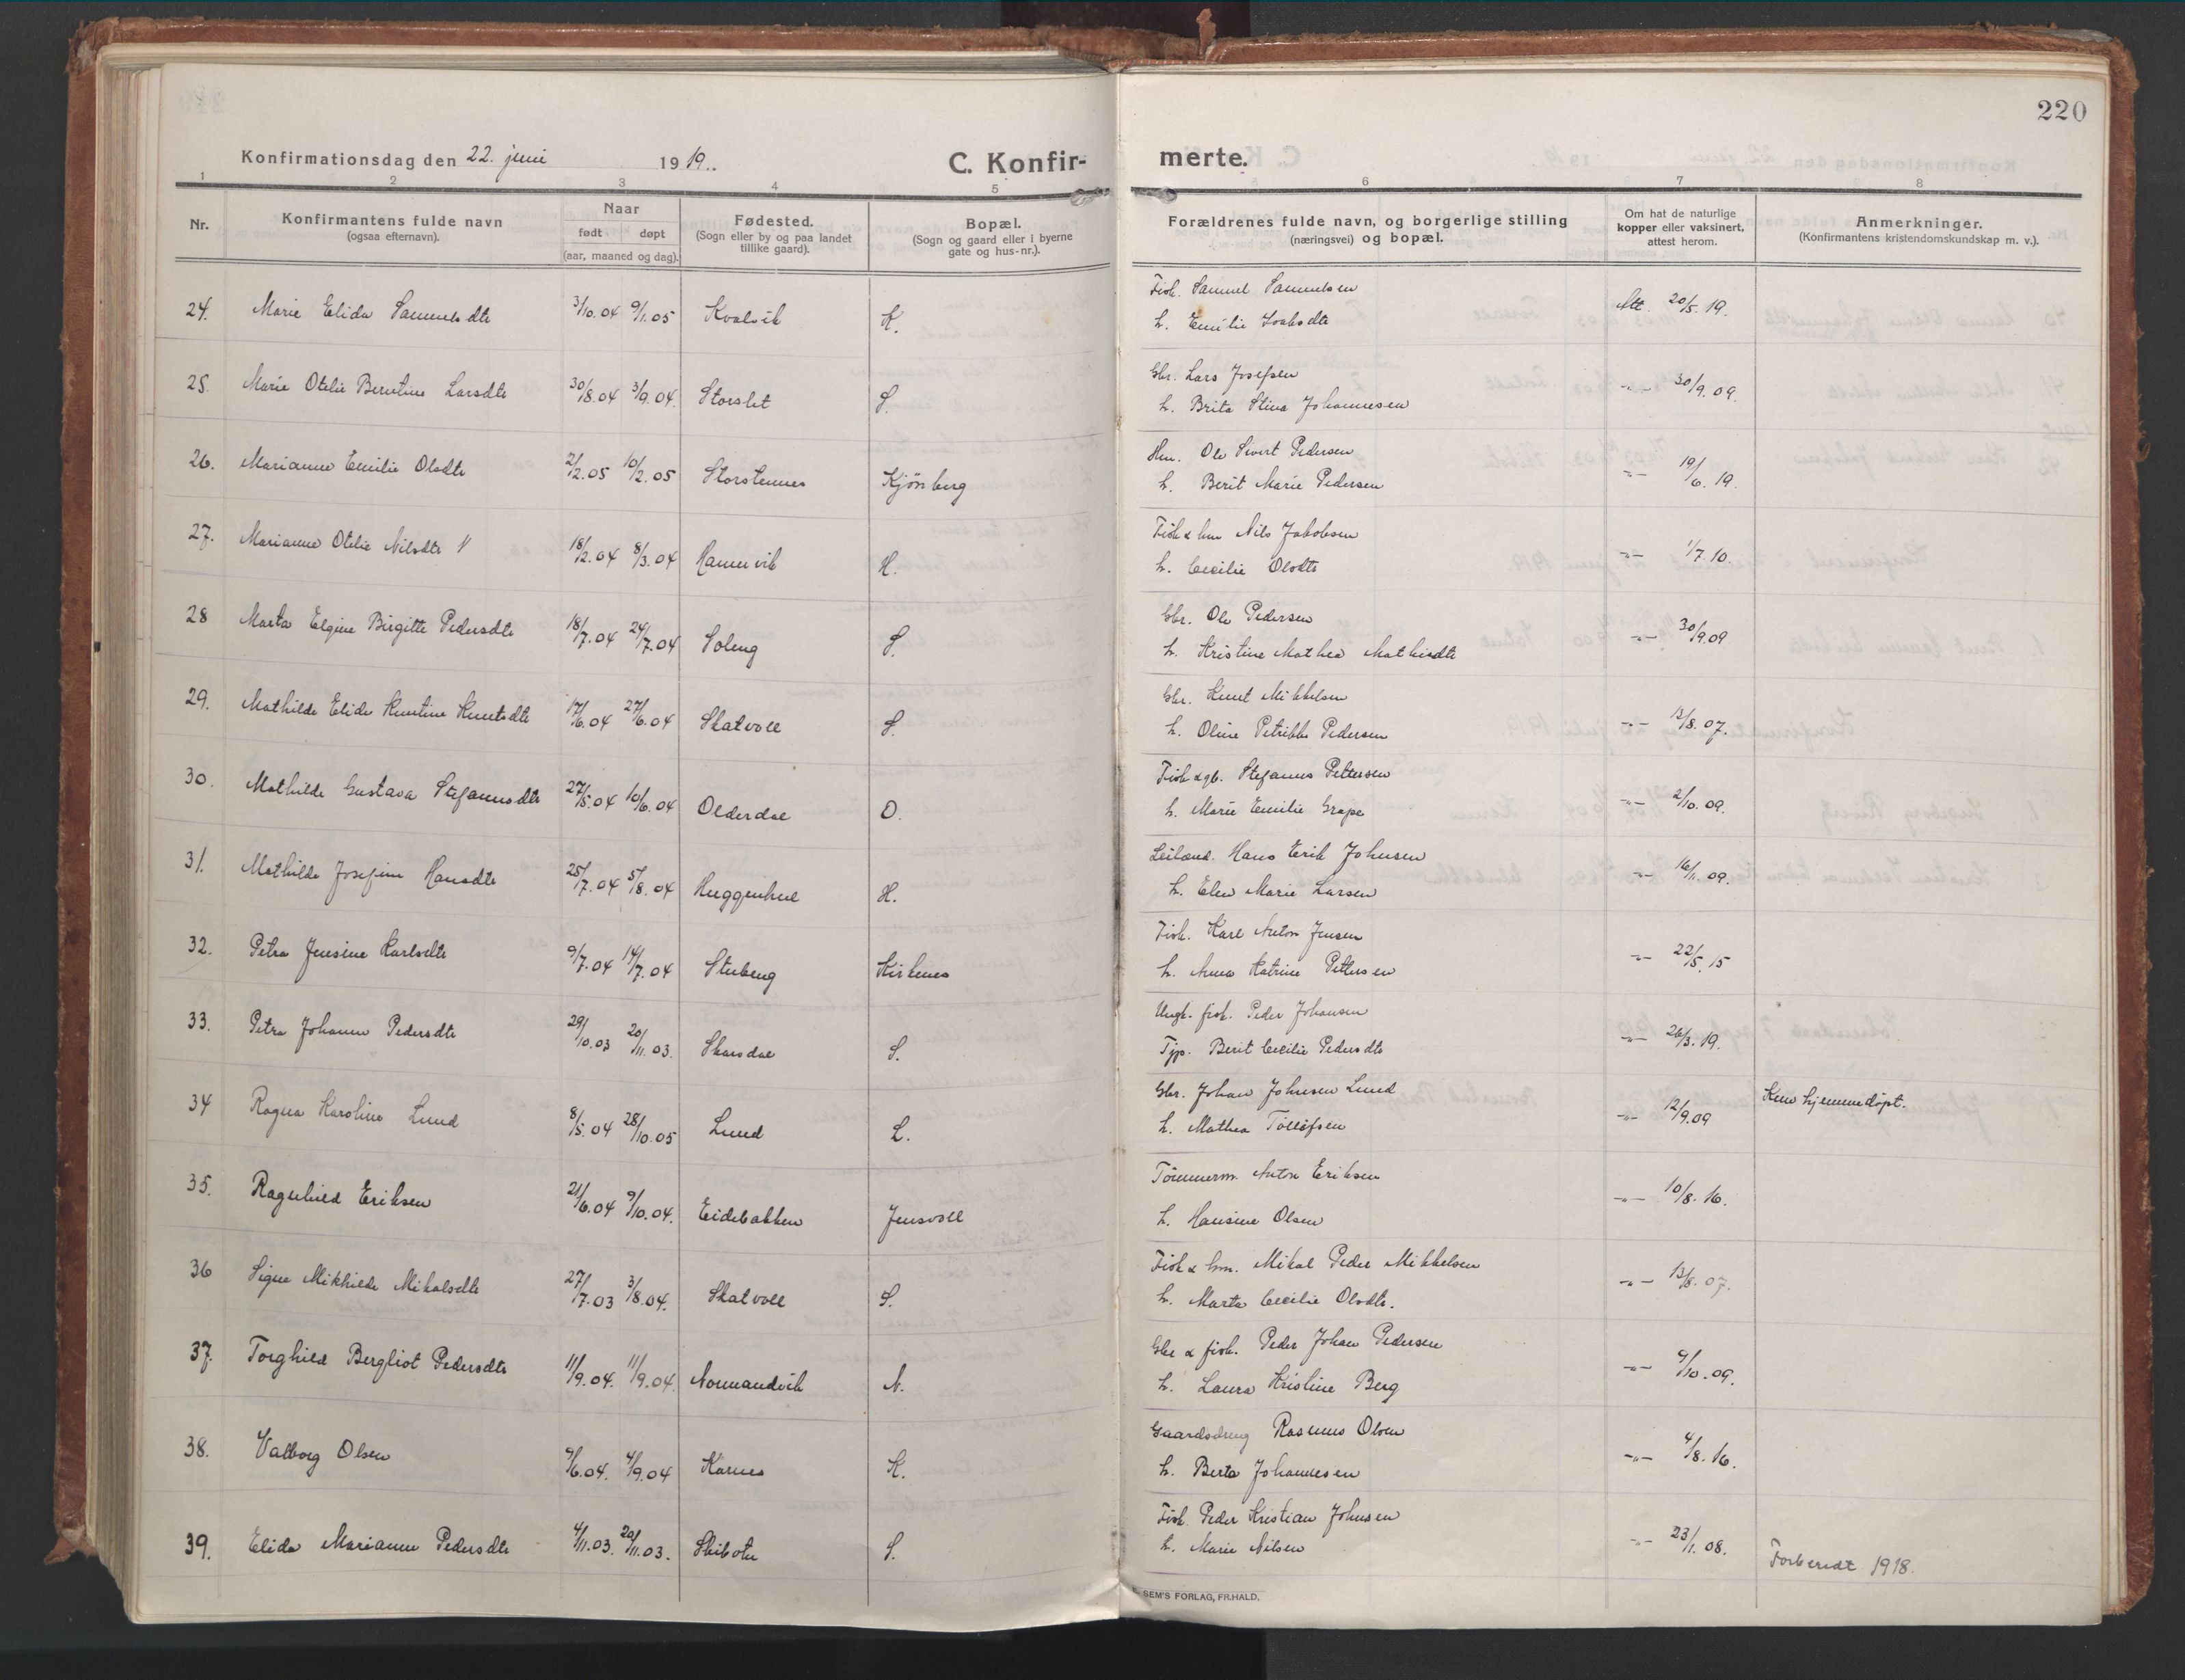 220
Konfirmationsdag den 22. juni 1919.. C. Konfirmerte.
1 2 3 4 5 6 7 8
Nr. Konfirmantens fulde navn (ogsaa efternavn). Naar født døpt (aar, maaned og dag). Fødested. (Sogn eller by og paa landet tillike gaard). Bopæl. (Sogn og gaard eller i byerne gate og hus-nr.). Forældrenes fulde navn, og borgerlige stilling (næringsvei) og bopæl. Om hat de naturlige kopper eller vaksinert, attest herom. Anmerkninger. (Konfirmantens kristendomskundskap m. v.).
24. Marie Elida Samuelsdtr 3/10.04 9/1.05 Kvalvik K. Fisk. Samuel Samuelsen
h. Emilie Isaksdtr Att. 20/5.19.
25. Marie Otelie Berntine Larsdtr 30/8.04 3/9.04. Storslet S. Gbr. Lars Josefsen
h. Brita Stina Johannesen -"- 30/9.09.
26. Marianne Emilie Olsdtr 2/2.05 10/2.05 Storstennes Kjønberg Hm. Ole Sivert Pedersen
h. Berit Marie Pedersen -"- 19/6.19.
27. Marianne Otelie Nilsdtr " 18/2.04 8/3.04 Hamnvik H. Fisk & hm Nils Jakobsen
h. Cecilie Olsdtr -"- 1/7.10.
28 Marta Elgine Birgitte Pedersdtr 18/7.04 24/7.04 Soleng S. Gbr. Ole Pedersen
h. Kristine Mathea Mathisdtr -"- 30/9.09
29. Mathilde Elida Knutine Knutsdtr 17/6.04 27/6.04 Skatvoll S. Gbr. Knut Mikkelsen
h. Oline Petrikke Pedersen -"- 13/8.07.
30. Mathilde Gustava Stefanusdtr 27/5.04 10/6.04 Olderdal O. Fisk & gb. Stefanus Pettersen
h. Marie Emilie Grape -"- 2/10.09.
31. Mathilde Josefine Hansdtr 25/7.04 5/8.04 Huggenhul H. Leilænd. Hans Erik Johnsen
h. Elen Marie Larsen -"- 16/11.09.
32. Petra Jensine Karlsdtr 9/7.04 14/7.04 Stubeng Kirkenes Fisk. Karl Anton Jensen
h. Anna Katrine Pettersen -"- 22/5.15
33. Petra Johanne Pedersdtr 29/10.03 20/11.03. Skarsdal S. Ungk. fisk. Peder Johansen
Tjp. Berit Cecilie Pedersdtr -"- 26/3.19.
34 Ragna Karoline Lund 8/5.04 28/10.05 Lund L. Gbr. Johan Johnsen Lund
h. Mathea Tollefsen -"- 12/9.09 Kun hjemmedøpt.
35. Ragnhild Eriksen 21/6.04 9/10.04. Eidebakken Jensvoll Tømmerm. Anton Eriksen
h. Hansine Olsen -"- 10/8.16.
36 Signe Mikhilde Mikalsdtr 27/7.03 3/8.04. Skatvoll S. Fisk & hm. Mikal Peder Mikkelsen
h. Marta Cecilie Olsdtr. -"- 13/8.07.
37. Torghild Bergliot Pedersdtr 11/9.04. 11/9.04. Normandvik N. Gbr & fisk. Peder Johan Pedersen
h. Laura Kristine Berg -"- 9/10.09.
38. Valborg Olsen 9/6.04. 4/9.04 Karnes K. Gaardsdreng Rasmus Olsen
h. Berta Johannesen -"- 4/8.16.
39. Elida Marianne Pedersdtr 4/11.03. 20/11.03. Skibotn S. Fisk. Peder Kristian Johnsen
h. Marie Nilsen -"- 23/1.08. Forberedt 1918.
E. SEM'S FORLAG, FR.HALD.